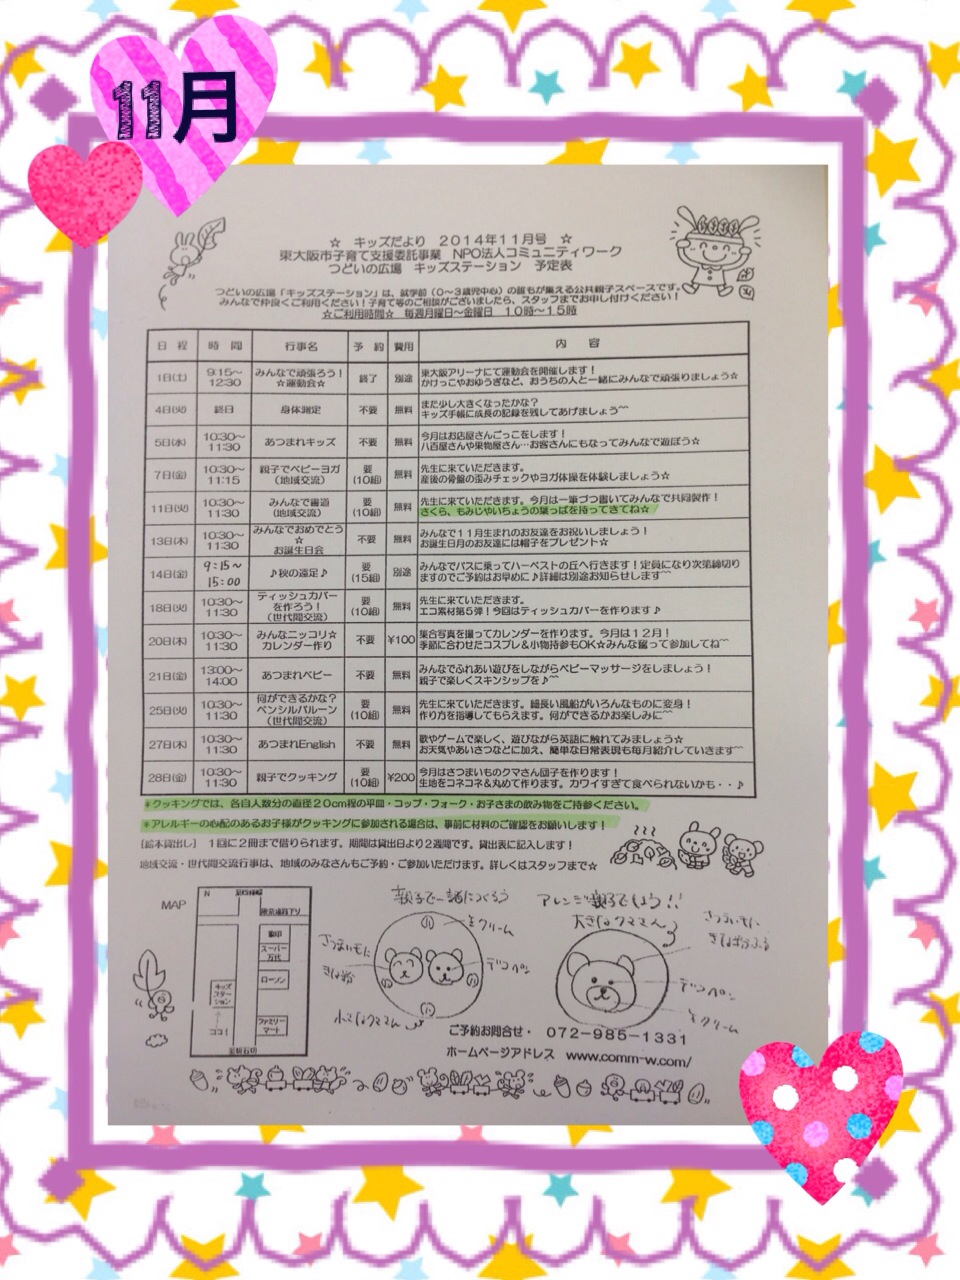 11月
☆ キッズだより 2014年11月号 ☆
東大阪市子育て支援委託事業 NPO法人コミュニティワーク
つどいの広場 キッズステーション 予定表
つどいの広場「キッズステーション」は、就学前(0～3歳児中心)の誰もが集える公共親子スペースです。
みんなで仲良くご利用ください!子育て等のご相談がございましたら、スタッフまでお申し付けください!
☆ご利用時間☆ 毎週月曜日～金曜日 10時～15時
日程 時間 行事名 予約 費用 内容
1日(土) 9:15～12:30 みんなで頑張ろう!☆運動会☆ 終了 別途 東大阪アリーナにて運動会を開催します!
かけっこやおゆうぎなど、おうちの人と一緒にみんなで頑張りましょう☆
4日(火) 終日 身体測定 不要 無料 また少し大きくなったかな?
キッズ手帳に成長の記録を残してあげましょう^^
5日(水) 10:30～11:30 あつまれキッズ 不要 無料 今月はお店屋さんごっこをします!
八百屋さんや果物屋さん…お客さんにもなってみんなで遊ぼう☆
7日(金) 10:30～11:15 親子でベビーヨガ(地域交流) 要(10組) 無料 先生に来ていただきます。
産後の骨盤の歪みチェックやヨガ体操を体験しましょう☆
11日(火) 10:30～11:30 みんなで書道(地域交流) 要(10組) 無料 先生に来ていただきます。今月は一筆づつ書いてみんなで共同製作!
さくら、もみじやいちょうの葉っぱを持ってきてね☆
13日(木) 10:30～11:30 みんなでおめでとう☆お誕生日会 不要 無料 みんなで11月生まれのお友達をお祝いしましょう!
お誕生日月のお友達には帽子をプレゼント☆
14日(金) 9:15～15:00 ♪秋の遠足♪ 要(15組) 別途 みんなでバスに乗ってハーベストの丘へ行きます!定員になり次第締切り
ますのでご予約はお早めに♪詳細は別途お知らせします^^
18日(火) 10:30～11:30 ティッシュカバーを作ろう!(世代間交流) 要(10組) 無料 先生に来ていただきます。
エコ素材第5弾!今回はティッシュカバーを作ります♪
20日(木) 10:30～11:30 みんなニッコリ☆カレンダー作り 不要 ¥100 集合写真を撮ってカレンダーを作ります。今月は12月!
季節に合わせたコスプレ&小物持参もOK☆みんな奮って参加してね^^
21日(金) 13:00～14:00 あつまれベビー 不要 無料 みんなでふれあい遊びをしながらベビーマッサージをしましょう!
親子で楽しくスキンシップを♪^^
25日(火) 10:30～11:30 何ができるかな?ペンシルバルーン(世代間交流) 要(10組) 無料 先生に来ていただきます。細長い風船がいろんなものに変身!
作り方を指導してもらえます。何ができるかお楽しみに^^
27日(木) 10:30～11:30 あつまれEnglish 不要 無料 歌やゲームで楽しく、遊びながら英語に触れてみましょう☆
お天気やあいさつなどに加え、簡単な日常表現も毎月紹介していきます^^
28日(金) 10:30～11:30 親子でクッキング 要(10組) ¥200 今月はさつまいものクマさん団子を作ります!
生地をコネコネ&丸めて作ります。カワイすぎて食べられないかも・・♪
*クッキングでは、各自人数分の直径20cm程の平皿・コップ・フォーク・お子さまの飲み物をご持参ください。
*アレルギーの心配のあるお子様がクッキングに参加される場合は、事前に材料のご確認をお願いします!
[絵本貸出し] 1回に2冊まで借りられます。期間は貸出日より2週間です。貸出表に記入します!
地域交流・世代間交流行事は、地域のみなさんもご予約・ご参加いただけます。詳しくはスタッフまで☆
MAP
N
スーパー
万代
ローソン
キッズ
ステー
ション
↑
ココ!
ファミリー
マート
至新石切
親子で一緒につくろう
生クリーム
さつまいもに
きな粉
デコペン
小さなクマさん
アレンジ親子でしよう!!
大きなクマさん
さつまいもに
きな粉ふる
デコペン
生クリーム
ご予約お問合せ・ 072-985-1331
ホームページアドレス www.comm-w.com/